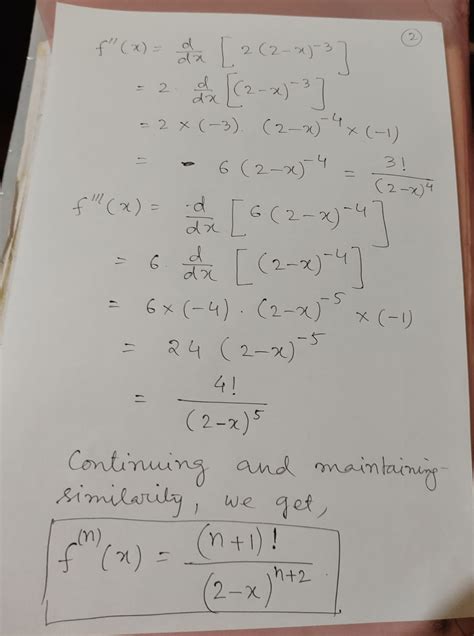 2
f''(x) = d/dx [2(2-x)^-3]
= 2 · d/dx [(2-x)^-3]
= 2 × (-3) · (2-x)^-4 × (-1)
= - 6 (2-x)^-4 = 3!/(2-x)^4
f'''(x) = d/dx [6(2-x)^-4]
= 6 · d/dx [(2-x)^-4]
= 6 × (-4) · (2-x)^-5 × (-1)
= 24 (2-x)^-5
= 4!/(2-x)^5
Continuing and maintaining
similarity, we get,
f^(n)(x) = (n+1)!/(2-x)^n+2